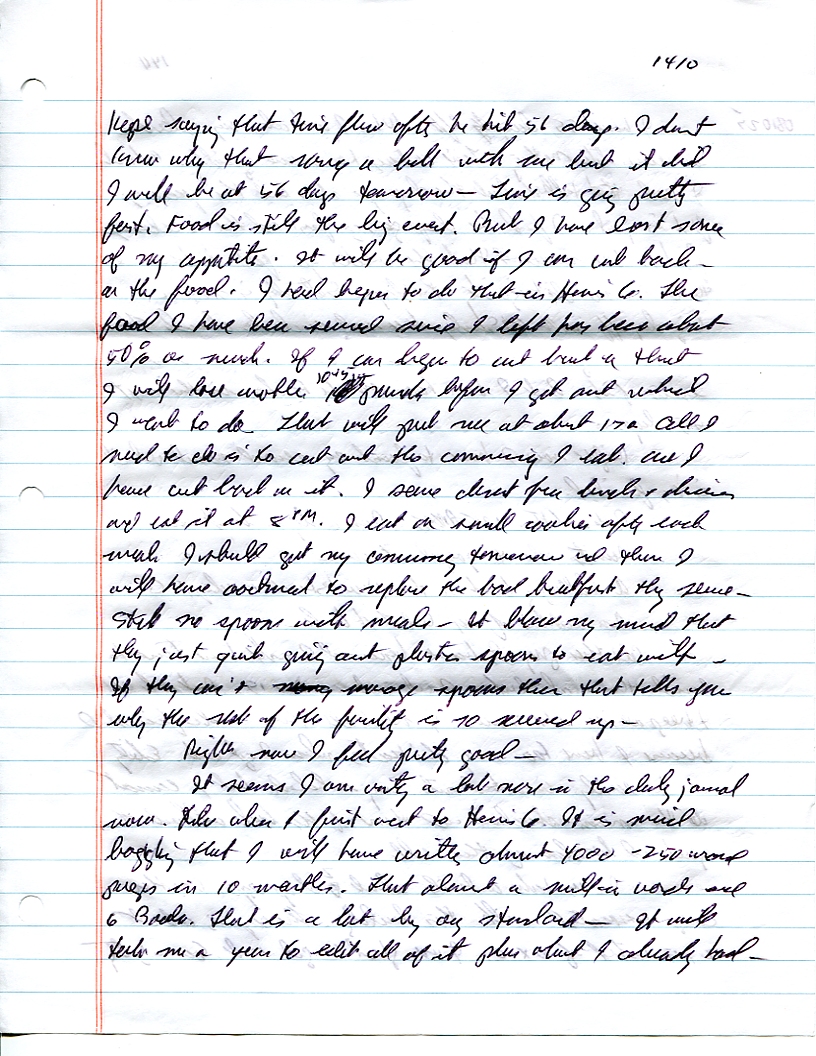 1410
Kept saying that time flew after he hit 56 days. I don't
know why that rang a bell with me but it did
I will be at 56 days tomorrow — Time is going pretty
fast. Food is still the big event. But I have lost some
of my appetite. It will be good if I can cut back —
on the food. I had begun to do that in Henis 6. The
food I have been served since I left has been about
50% as much. If I can begin to cut back on that
I will lose another 10 to 15 pounds before I get out which
I want to do. That will put me at about 170 all I
need to do is to cut out the commissary I eat. and I
have cut back on it. I save desert from lunch & dinner
and eat it at 8 PM. I eat on small cookies after each
meal. I should get my commissary tomorrow and then I
will have oatmeal to replace the bad breakfast they serve —
Still no spoons with meals — It blows my mind that
they just quit giving out plastic spoons to eat with —
If they can't manage spoons then that tells you
why the rest of the facility is so screwed up —
Right now I feel pretty good —
It seems I am writing a lot more in the daily journal
now. Like when I first went to Henis 6. It is mind
boggling that I will have written almost 4000 - 250 word
pages in 10 months. That almost a million words and
6 Books. That is a lot by any standard — It will
take me a year to edit all of it plus what I already had —